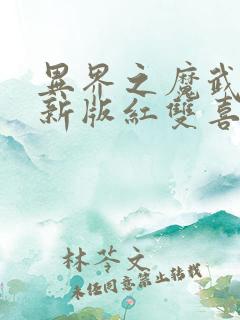 異界之魔武
新版紅雙喜
林苓文
未任同意禁止轉載